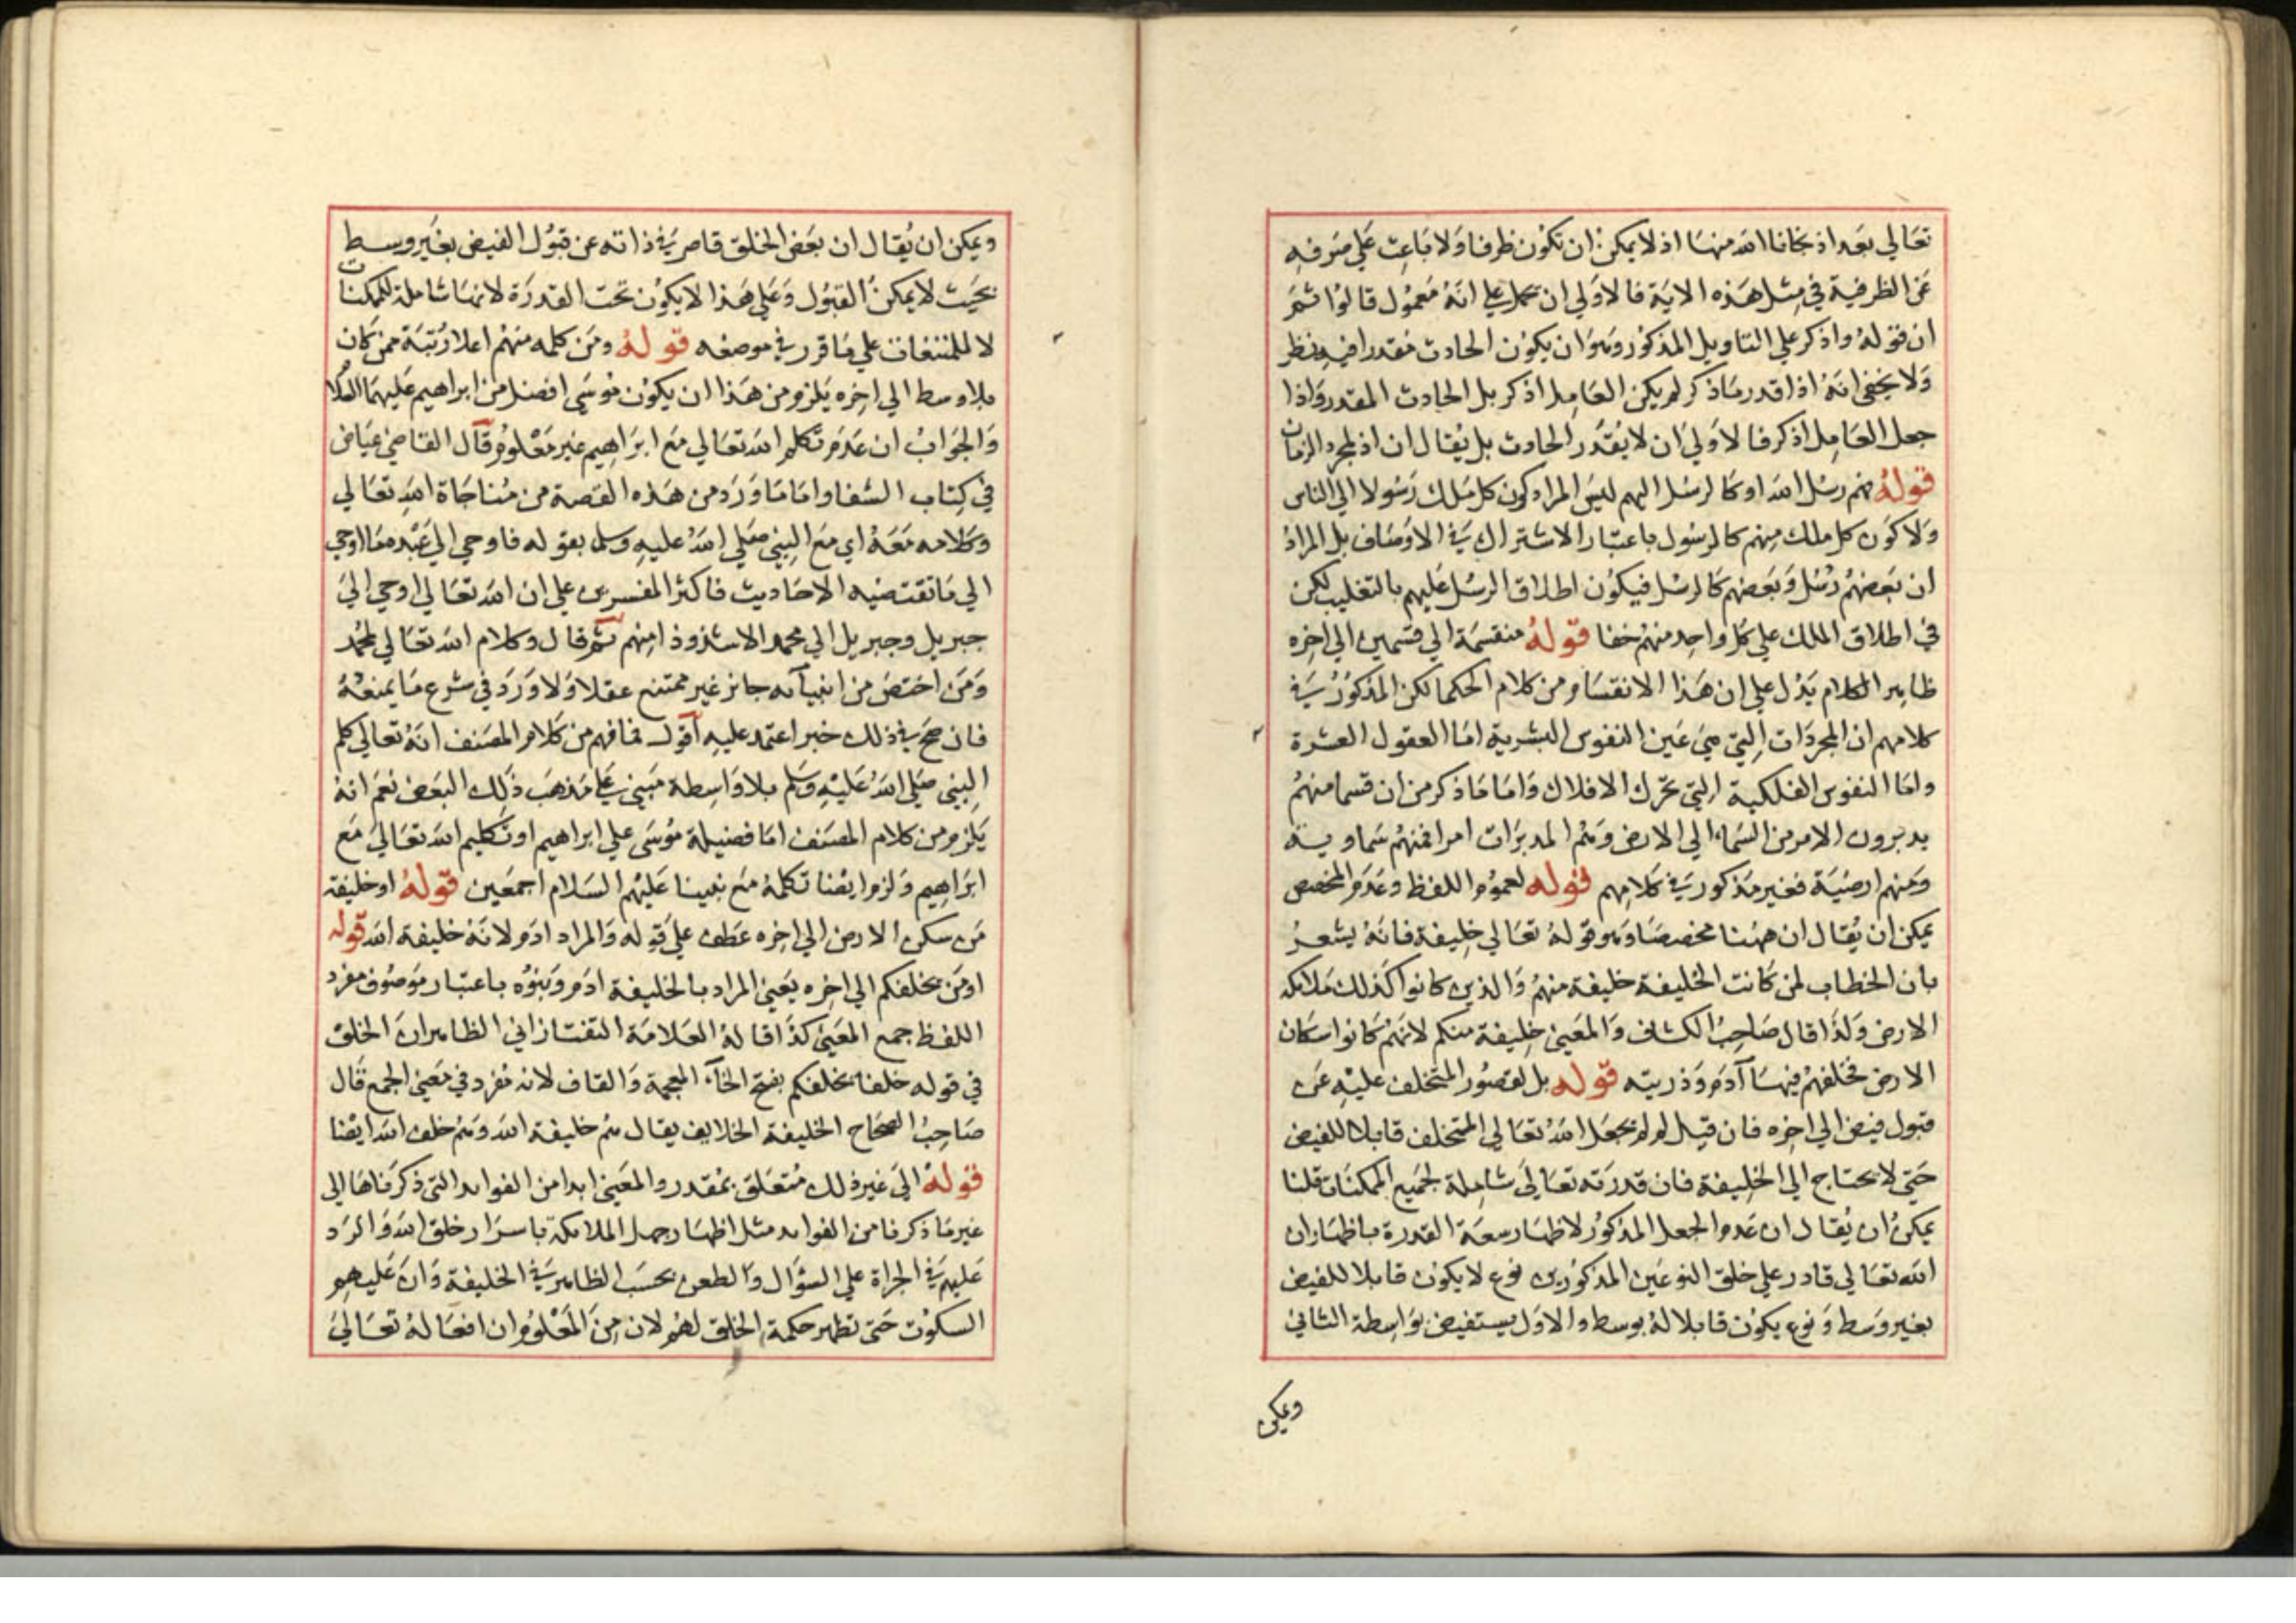 تعالى بعد اذ نجانا الله منها اذ لا يمكن ان تكون ظرفا ولا باعث على صرفه
عن الظرفية في مثل هذه الاية فالاولي ان يحمل علي انه معمول قالوا ثم
ان قوله واذكر علي التاويل المذكور وهو ان يكون الحادث مقدرا فيه نظر
ولا يخفى انه اذا قدر ما ذكر لم يكن العامل اذكر بل الحادث المقدر واذا
جعل العامل اذكر فالاولي ان لا يقدر الحادث بل يقال ان اذ لمجرد الزمان
قوله فهم رسل الله او كالرسل اليهم ليس المراد كون كل ملك رسولا الي الناس
ولا كون كل ملك منهم كالرسول باعتبار الاشتراك في الاوصاف بل المراد
ان بعضهم رسل وبعضهم كالرسل فيكون اطلاق الرسل عليهم بالتغليب لكن
في اطلاق الملك علي كل واحد منهم خفا قوله منقسمة الي قسمين الي اخره
ظاهر الكلام يدل علي ان هذا الانقسام من كلام الحكما لكن المذكور في
كلامهم ان المجردات التي هي غير النفوس البشرية اما العقول العشرة
واما النفوس الفلكية التي تحرك الافلاك واما ما ذكر من ان قسما منهم
يدبرون الامر من السماء الي الارض وهم المدبرات امرا فمنهم سماوية
ومنهم ارضية فغير مذكور في كلامهم قوله لعموم اللفظ وعدم المخصص
يمكن ان يقال ان ههنا مخصصا وهو قوله تعالي خليفة فانه يشعر
بان الخطاب لمن كانت الخليفة خليفة منهم والذين كانوا كذلك ملائكة
الارض ولذا قال صاحب الكشاف والمعني خليفة منكم لانهم كانوا سكان
الارض فخلفهم فيها آدم وذريته قوله بل لقصور المتخلف عليه عن
قبول فيض الي اخره فان قيل لم لم يجعل الله تعالي المتخلف قابلا للفيض
حتي لا يحتاج الي الخليفة فان قدرته تعالي شاملة لجميع الممكنات قلنا
يمكن ان يقال ان عدم الجعل المذكور لاظهار سعة القدرة باظهار ان
الله تعالي قادر علي خلق النوعين المذكورين نوع لا يكون قابلا للفيض
بغير وسط ونوع يكون قابلا له بوسط والاول يستفيض بواسطة الثاني
ويمكن
ويمكن ان يقال ان بعض الخلق قاصر في ذاته عن قبول الفيض بغير وسط
بحيث لا يمكن القبول وعلي هذا لا يكون تحت القدرة لانها شاملة للممكنات
لا للممتنعات علي ما قرر في موضعه قوله ومن كلمه منهم اعلا رتبة ممن كان
بلا وسط الي اخره يلزم من هذا ان يكون موسى افضل من ابراهيم عليهما السلام
والجواب ان عدم تكلم الله تعالي مع ابراهيم غير معلوم قال القاضي عياض
في كتاب الشفا واما ما ورد من هذه القصة من مناجاة الله تعالي
وكلامه معه اي مع النبي صلي الله عليه وسلم بقوله فاوحي الي عبده ما اوحي
الي ما تقتضيه الاحاديث فاكثر المفسرين علي ان الله تعالي اوحي الي
جبريل وجبريل الي محمد الا شذوذا منهم ثم قال وكلام الله تعالي لمحمد
ومن اختص من انبيائه جائز غير ممتنع عقلا ولا ورد في شرع ما يمنعه
فان صح في ذلك خبر اعتمد عليه اقول فما فهم من كلام المصنف انه تعالي كلم
النبي صلي الله عليه وسلم بلا واسطة مبني علي مذهب ذلك البعض نعم انه
يلزم من كلام المصنف اما فضيلة موسى علي ابراهيم او تكليم الله تعالي مع
ابراهيم ولزم ايضا تكلمه مع نبينا عليهم السلام اجمعين قوله او خليفة
من سكن الارض الي اخره عطف علي قوله والمراد ادم لانه خليفة الله قوله
او من يخلفكم الي اخره يعني المراد بالخليفة ادم وبنوه باعتبار موصوف مفرد
اللفظ جمع المعني كذا قاله العلامة التفتازاني الظاهر ان الخلق
في قوله خلقا يخلفكم بفتح الخآء المعجمة والقاف لانه مفرد في معني الجمع قال
صاحب الصحاح الخليفة الخلايف يقال هم خليفة الله وهم خلق الله ايضا
قوله الي غير ذلك متعلق بمقدر والمعني ابدا من الفوايد التي ذكرناها الي
غير ما ذكرنا من الفوايد مثل اظهار جهل الملائكة باسرار خلق الله والرد
عليهم في الجراة علي السؤال والطعن بحسب الظاهر في الخليفة وان عليهم
السكوت حتي تظهر حكمة الخلق لهم لان من المعلوم ان افعاله تعالي